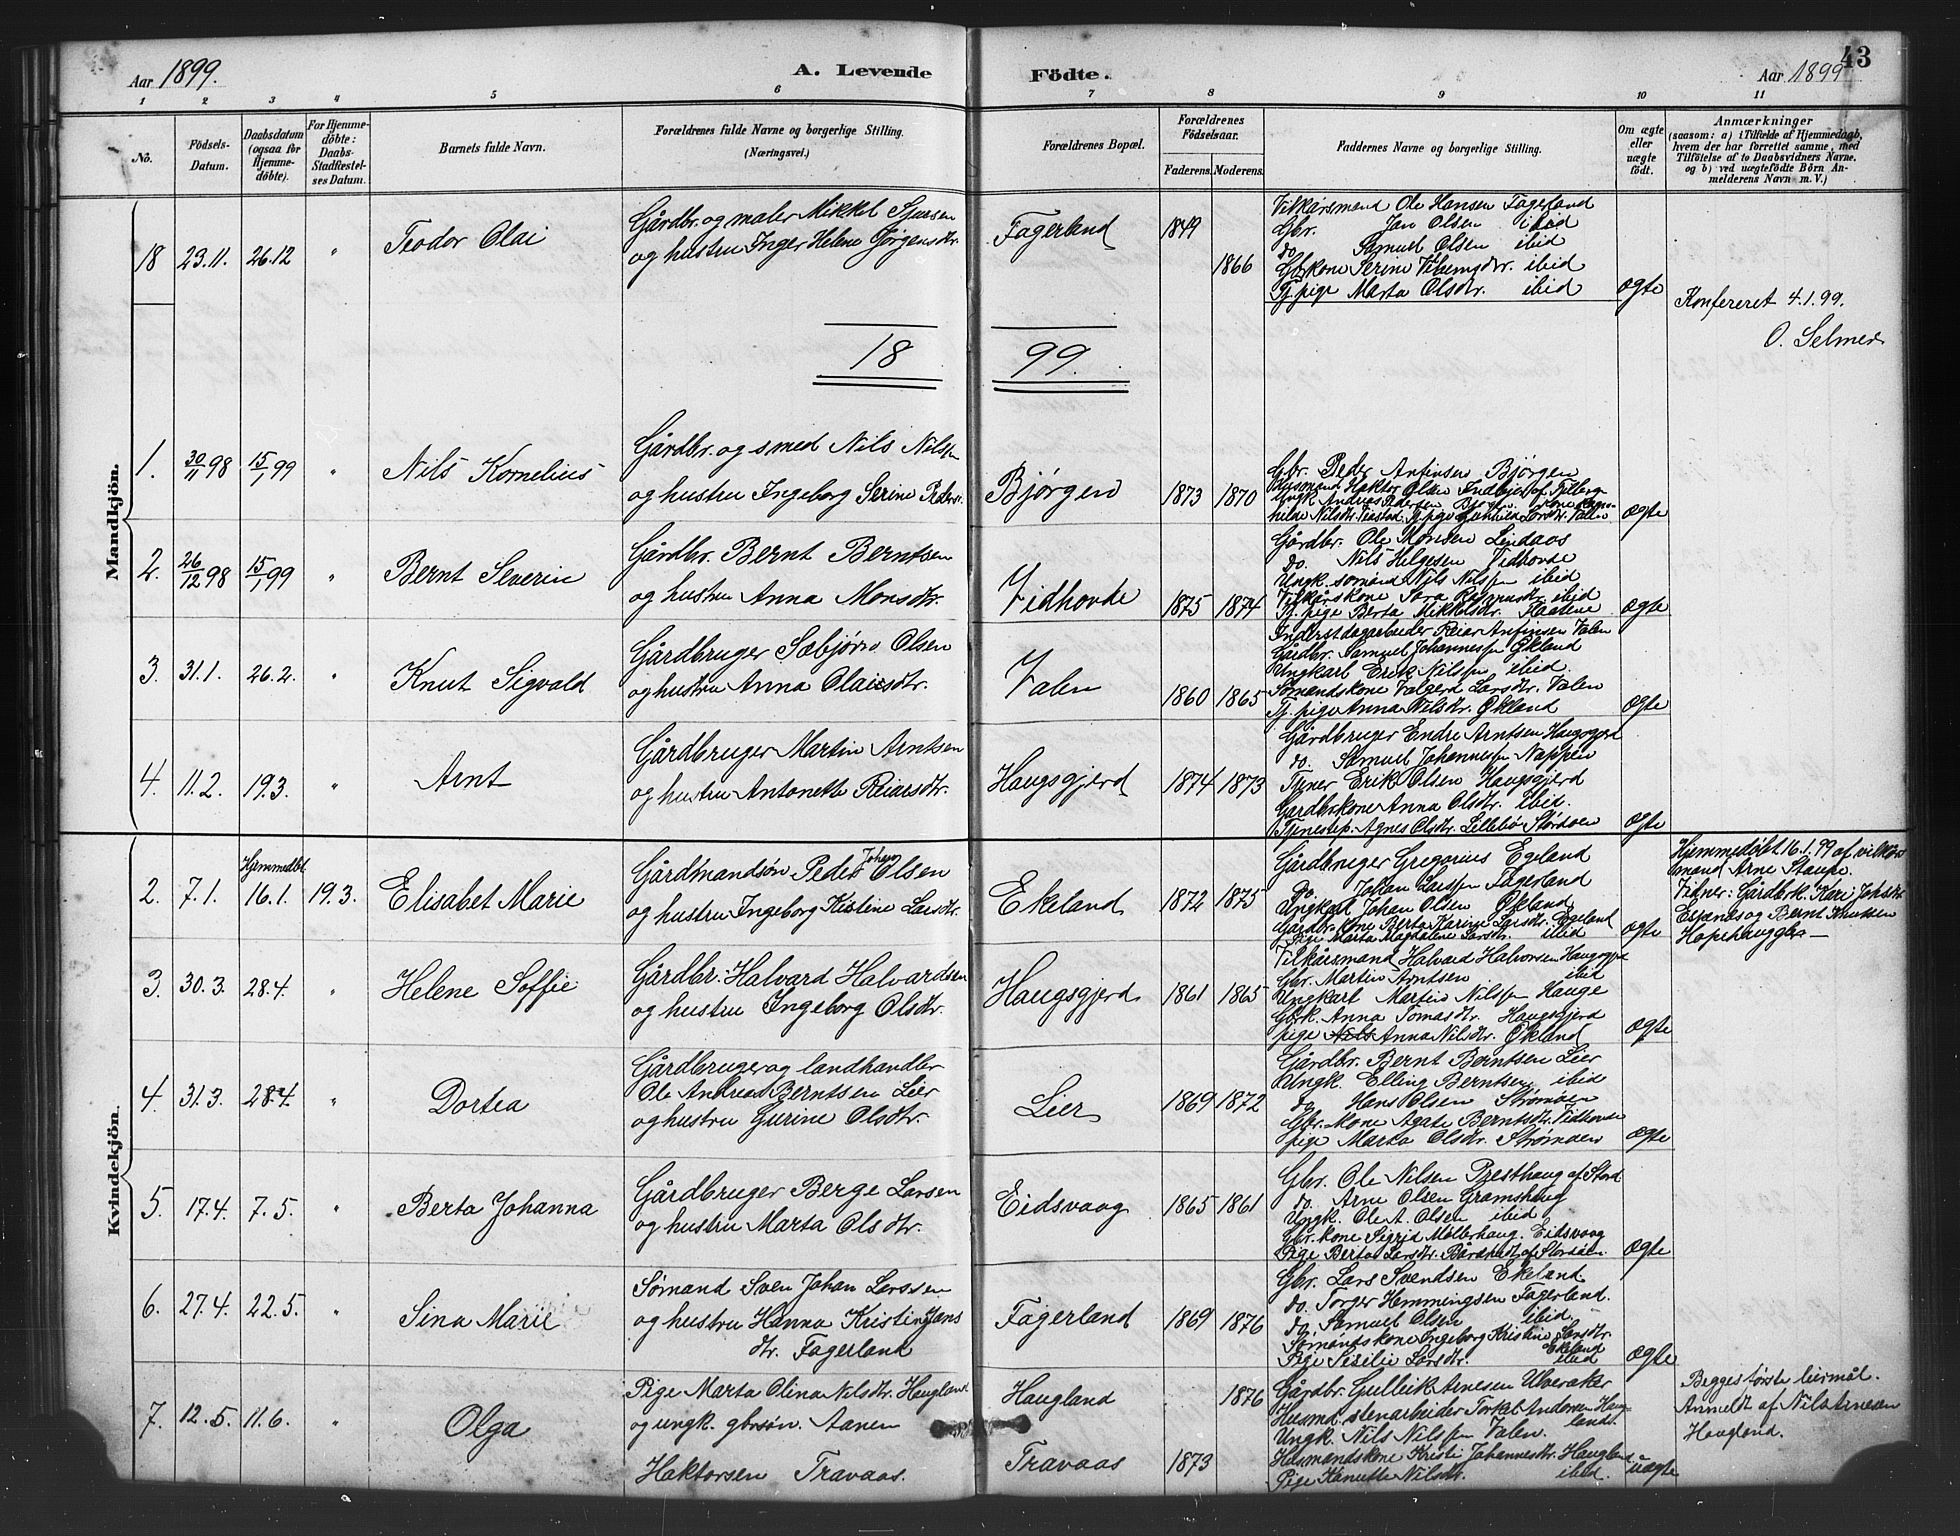 Aar 1899. A. Levende Födte. Aar 1899 43
1 2 3 4 5 6 7 8 9 10 11
No.
Födsels-
Datum.
Daabsdatum
(ogsaa for
Hjemme-
döbte).
For Hjemme-
döbte:
Daabs-
Stadfæstel-
ses Datum.
Barnets fulde Navn.
Forældrenes fulde Navne og borgerlige Stilling.
(Næringsvei.)
Forældrenes Bopæl.
Forældrenes
Födselsaar.
Faderens. Moderens.
Faddernes Navne og borgerlige Stilling.
Om ægte
eller
uægte
födt.
Anmærkninger
(saasom: a) i Tilfælde af Hjemmedaab,
hvem der har forrettet samme, med
Tilföielse af to Daabsvidners Navne.
og b) ved uægtefödte Börn An-
melderens Navn m. V.)
Mandkjön.
18 23.11. 26.12 " Teodor Olai
Gårdbr. og maler Mikkel Sjursen
og hustru Inger Helene Jörgensdtr.
Fagerland 1849 1866
Vilkårsmand Ole Hansen Fagerland
Gbr. Jan Olsen ibid
do Samuel Olsen ibid
Gbkone Serine ibid
Tj. pige Marta Olsdtr. ibid
ægte
Konfereret 4.1.99.
O. Selmer
18 99.
1. 30/11 98 15/1 99 " Nils Kornelius
Gårdbr. og smed Nils Nilsen
og hustru Ingeborg Serine Peders.
Bjørgen 1873 1870
Gbr. Peder Anfinsen Bjørgen
Husmand Haktor Olsen
Ungk. Andreas Pedersen
Nilsdtr. Tj. pige Larsdtr. Valen
ægte
2. 26/12 98 15/1 99 " Bernt Severin
Gårdbr. Bernt Berntsen
og hustru Anna Monsdtr.
Vidhovde 1875 1874
Gårdbr. Ole Monsen Lindaos
do. Nils Helgesen Vidhovde
Ungk. sømand Nils Nilssen ibid
Vilkårskone Sara ibid
Tj. pige Berta Mikkelsdtr. Flaatene
ægte
3. 31.1. 26.2. " Knut Sigvald
Gårdbruger Sæbjørn Olsen
og hustru Anna Olaisdtr.
Valen 1860 1865
Inderst dagarbeider Reiar Anfinsen Valen
Gårdbr. Samuel Johannessen Økland
Ungkarl Erik Nilssen ibid.
Sømandskone Valgerd Larsdtr. Valen
Tj. pige Anna Nilsdtr. Økland
ægte
4. 11.2. 19.3. " Arnt
Gårdbruger Martin Arntsen
og hustru Antonette Reiarsdtr.
Haugsgjerd 1874 1873
Gårdbruger Endre Arntsen Haugsgjerd
do. Samuel Johannessen Nappen
Tjener Erik Olsen Haugsgjerd
Gårdbrkone Anna Olsdtr. ibid.
Tjenestep. Agnes Olsdtr. Lillebø Stordøen
ægte
Kvindekjön.
2. 7.1. Hjemmedbt. 16.1. 19.3. Elisabet Marie
Gårdmandsøn Peder Johan Olsen
og hustru Ingeborg Kristine Larsdtr.
Ekeland 1872 1875
Gårdbruger Gregorius Egeland
Do. Johan Larssen Fagerland
Ungkarl Johan Olsen Økland
Gårdbr. kone Berta Karine Larsdtr. Egeland
Pige Marta Magdalene Larsdtr. ibid
ægte
Hjemmedöbt 16.1.99 af vilkårs
mand Arne Staupe.
Vidner: Gårdbrk. Kari Johsdtr.
Espenes og Bernt Knutsen
Hopehauggen
3. 30.3. 28.4. " Helene Soffie
Gårdbr. Halvard Halvardsen
og hustru Ingeborg Olsdtr.
Haugsgjerd 1861 1865
Vilkårsmand Halvard Halvorsen Haugsgjd
Gbr. Martin Arntsen ibid
Ungkarl Martin Nilssen Hauge
Gbrk. Anna Tomasdtr. Haugsgjerd
pige Nils Anna Nilsdtr. Økland
ægte
4. 31.3. 28.4. " Dortea
Gårdbruger og landhandler
Ole Andreas Berntsen Lier
og hustru Gurine Olsdtr.
Lier 1869 1872
Gårdbr. Bernt Berntsen Lier
Ungk. Elling Berntsen ibid
do Hans Olsen Strømøen
Gbr. kone Agate Berntsdtr. Vidhovde
pige Marta Olsdtr. Strømøen
ægte
5. 17.4. 7.5. " Berta Johanna
Gårdbruger Berge Larsen
og hustru Marta Olsdtr.
Eidsvaag 1865 1861
Gbr. Ole Nilsen Presthaug af Stord
do. Arne Olsen Gramshaug
Ungk. Ole A. Olsen ibid
Gbr. kone Sigrid Møllerhaug. Eidsvaag
Pige Berta Larsdtr. af Stordøen
ægte
6. 27.4. 22.5. " Sina Marie
Sømand Sven Johan Larssen
og hustru Hanna Kristine Jans
dtr. Fagerland
Fagerland 1869 1876
Gbr. Lars Svendsen Ekeland
do. Torger Hemmingsen Fagerland.
do. Samuel Olsen ibid.
Sømandskone Ingeborg Kristine Larsdtr. Ekeland
Pige Sisilie Larsdtr. ibid
ægte
7. 12.5. 11.6. " Olga
Pige Marta Olina Nilsdtr. Haugland
og ungk. gbrsøn. Aanen
Haktorsen Travaas.
Haugland 1876
Travaas 1873
Gårdbr. Gulleik Arnesen Ulveraker
Husmd. stenarbeider Torkel Andersen Haug-
land.
Ungk. Nils Nilssen Valen.
Husmandskone Kristi Johannesdtr. Haugland
Pige Kanutte Nilsdtr. ibid.
uægte
Begges første leiermål.
Anmeldt af Nils Arnesen
Haugland.